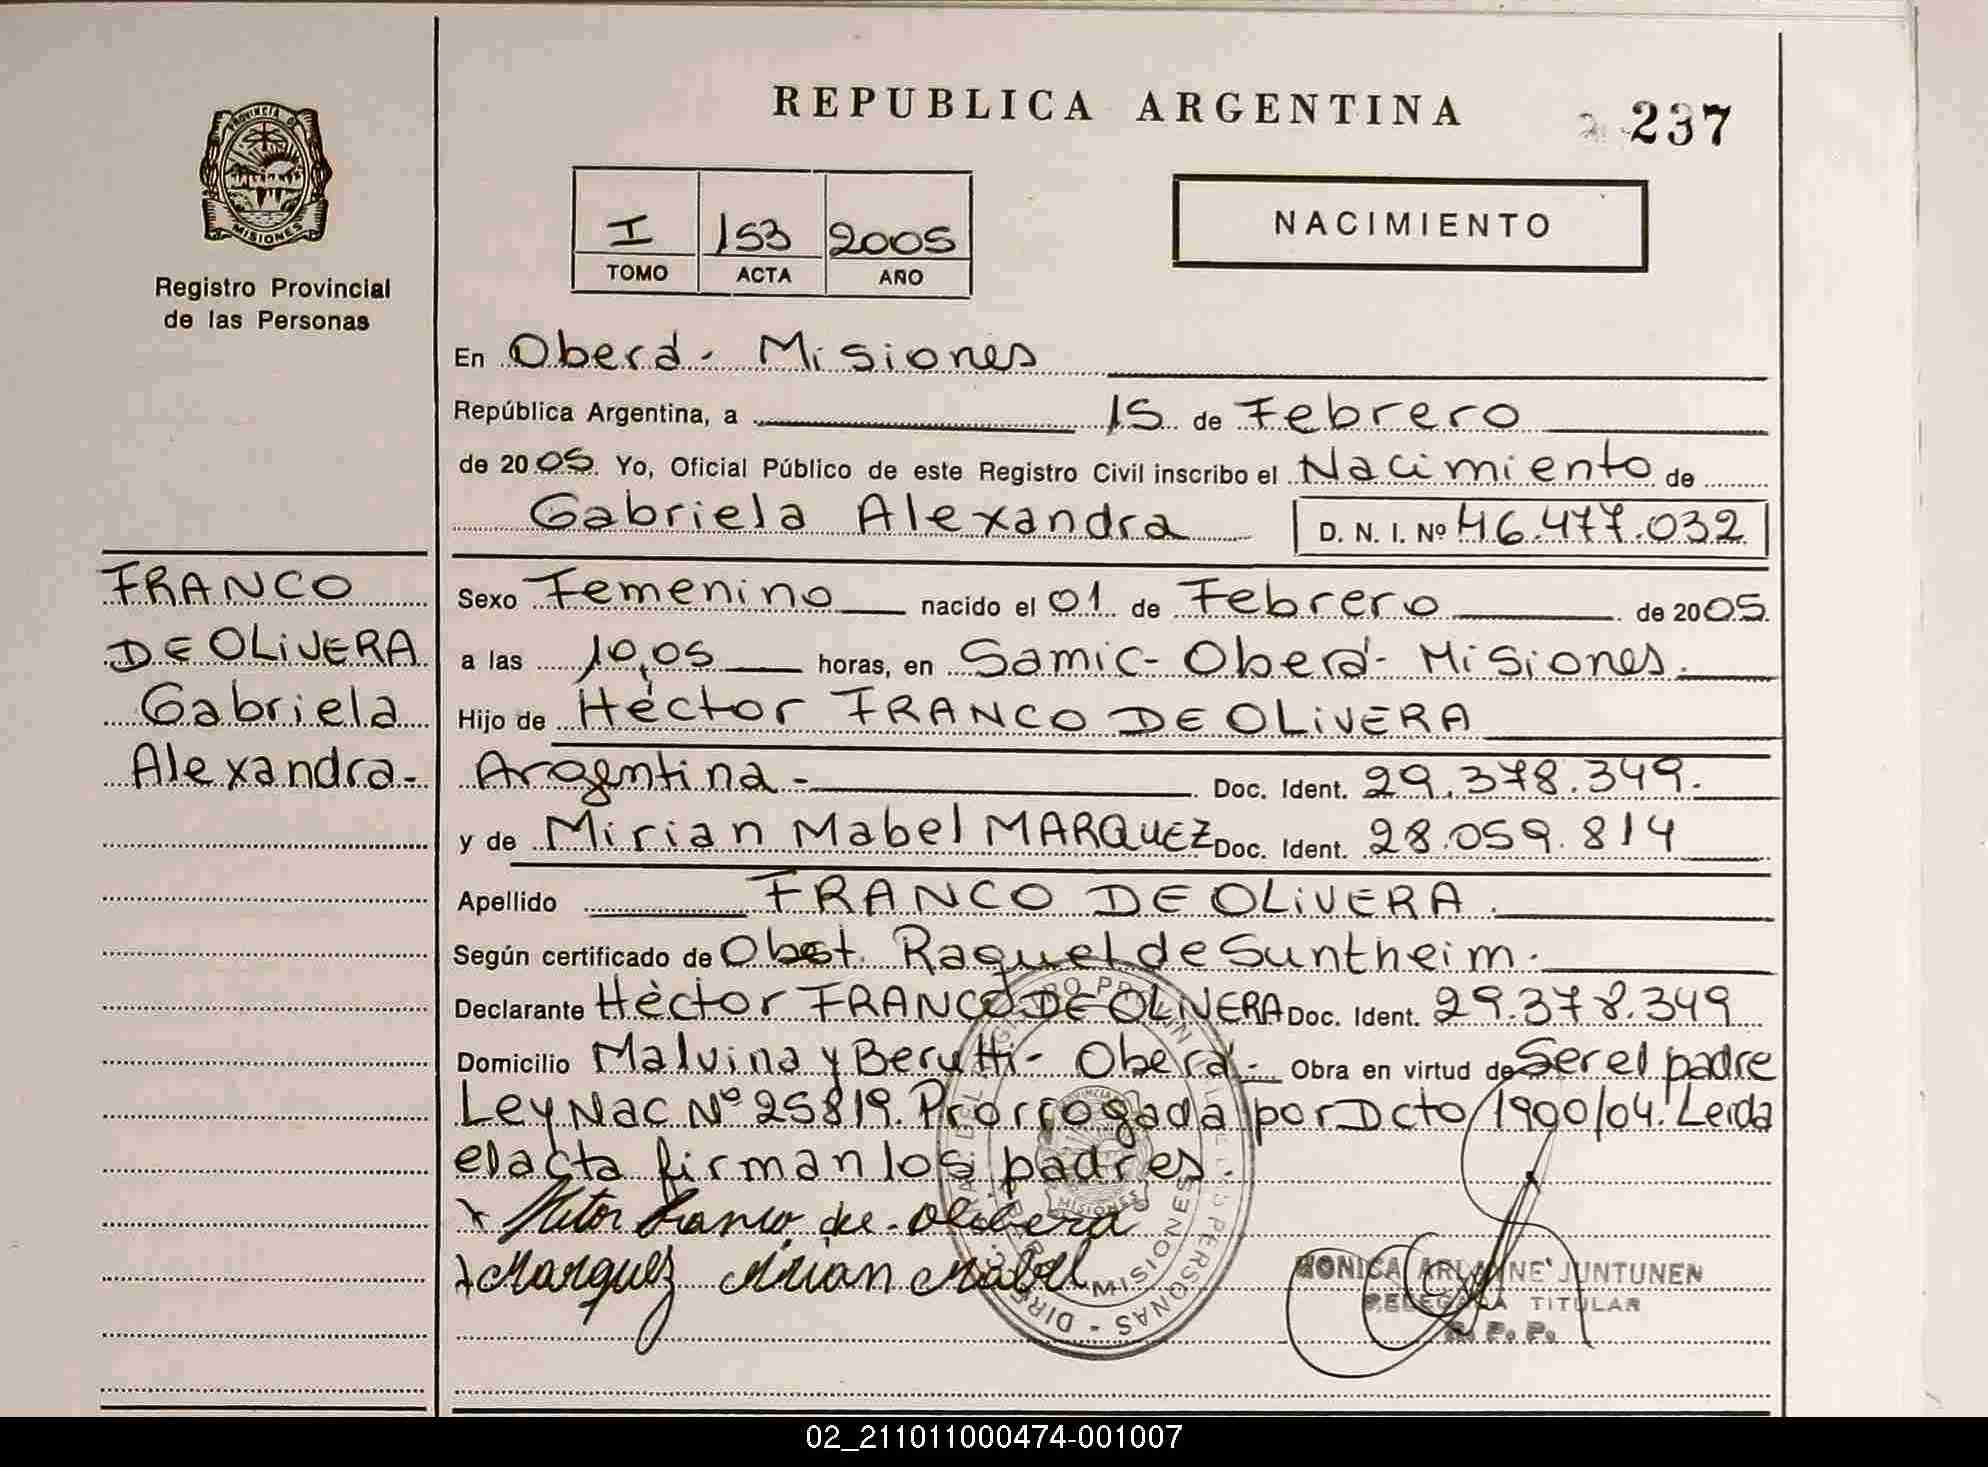 REPUBLICA ARGENTINA
237
PROVINCIA DE
MISIONES
Registro Provincial
de las Personas
I 153 2005
TOMO ACTA AÑO
NACIMIENTO
En Oberá - Misiones
República Argentina, a 15 de Febrero
de 2005. Yo, Oficial Público de este Registro Civil inscribo el Nacimiento de
Gabriela Alexandra D. N. I. Nº 46.477.032
FRANCO
DE OLIVERA
Gabriela
Alexandra-
Sexo Femenino nacido el 01 de Febrero de 2005.
a las 10,05 horas, en Samic- Oberá- Misiones.
Hijo de Héctor FRANCO DE OLIVERA
Argentina - Doc. Ident. 29.378.349.
y de Mirian Mabel MARQUEZ Doc. Ident. 28.059.814
Apellido FRANCO DE OLIVERA.
Según certificado de Obst. Raquel de Suntheim.
Declarante Héctor FRANCO DE OLIVERA Doc. Ident. 29.378.349
Domicilio Malvina y Berutti- Oberá- Obra en virtud de Ser el padre
Ley Nac Nº 25819. Prorrogada por Dcto 1900/04. Leida
el acta firman los padres.
x Franco de olibera
x Marquez Mirian Mabel
MISIONES
MONICA ARIANNE JUNTUNEN
DELEGADA TITULAR
R. P. P.
02_211011000474-001007